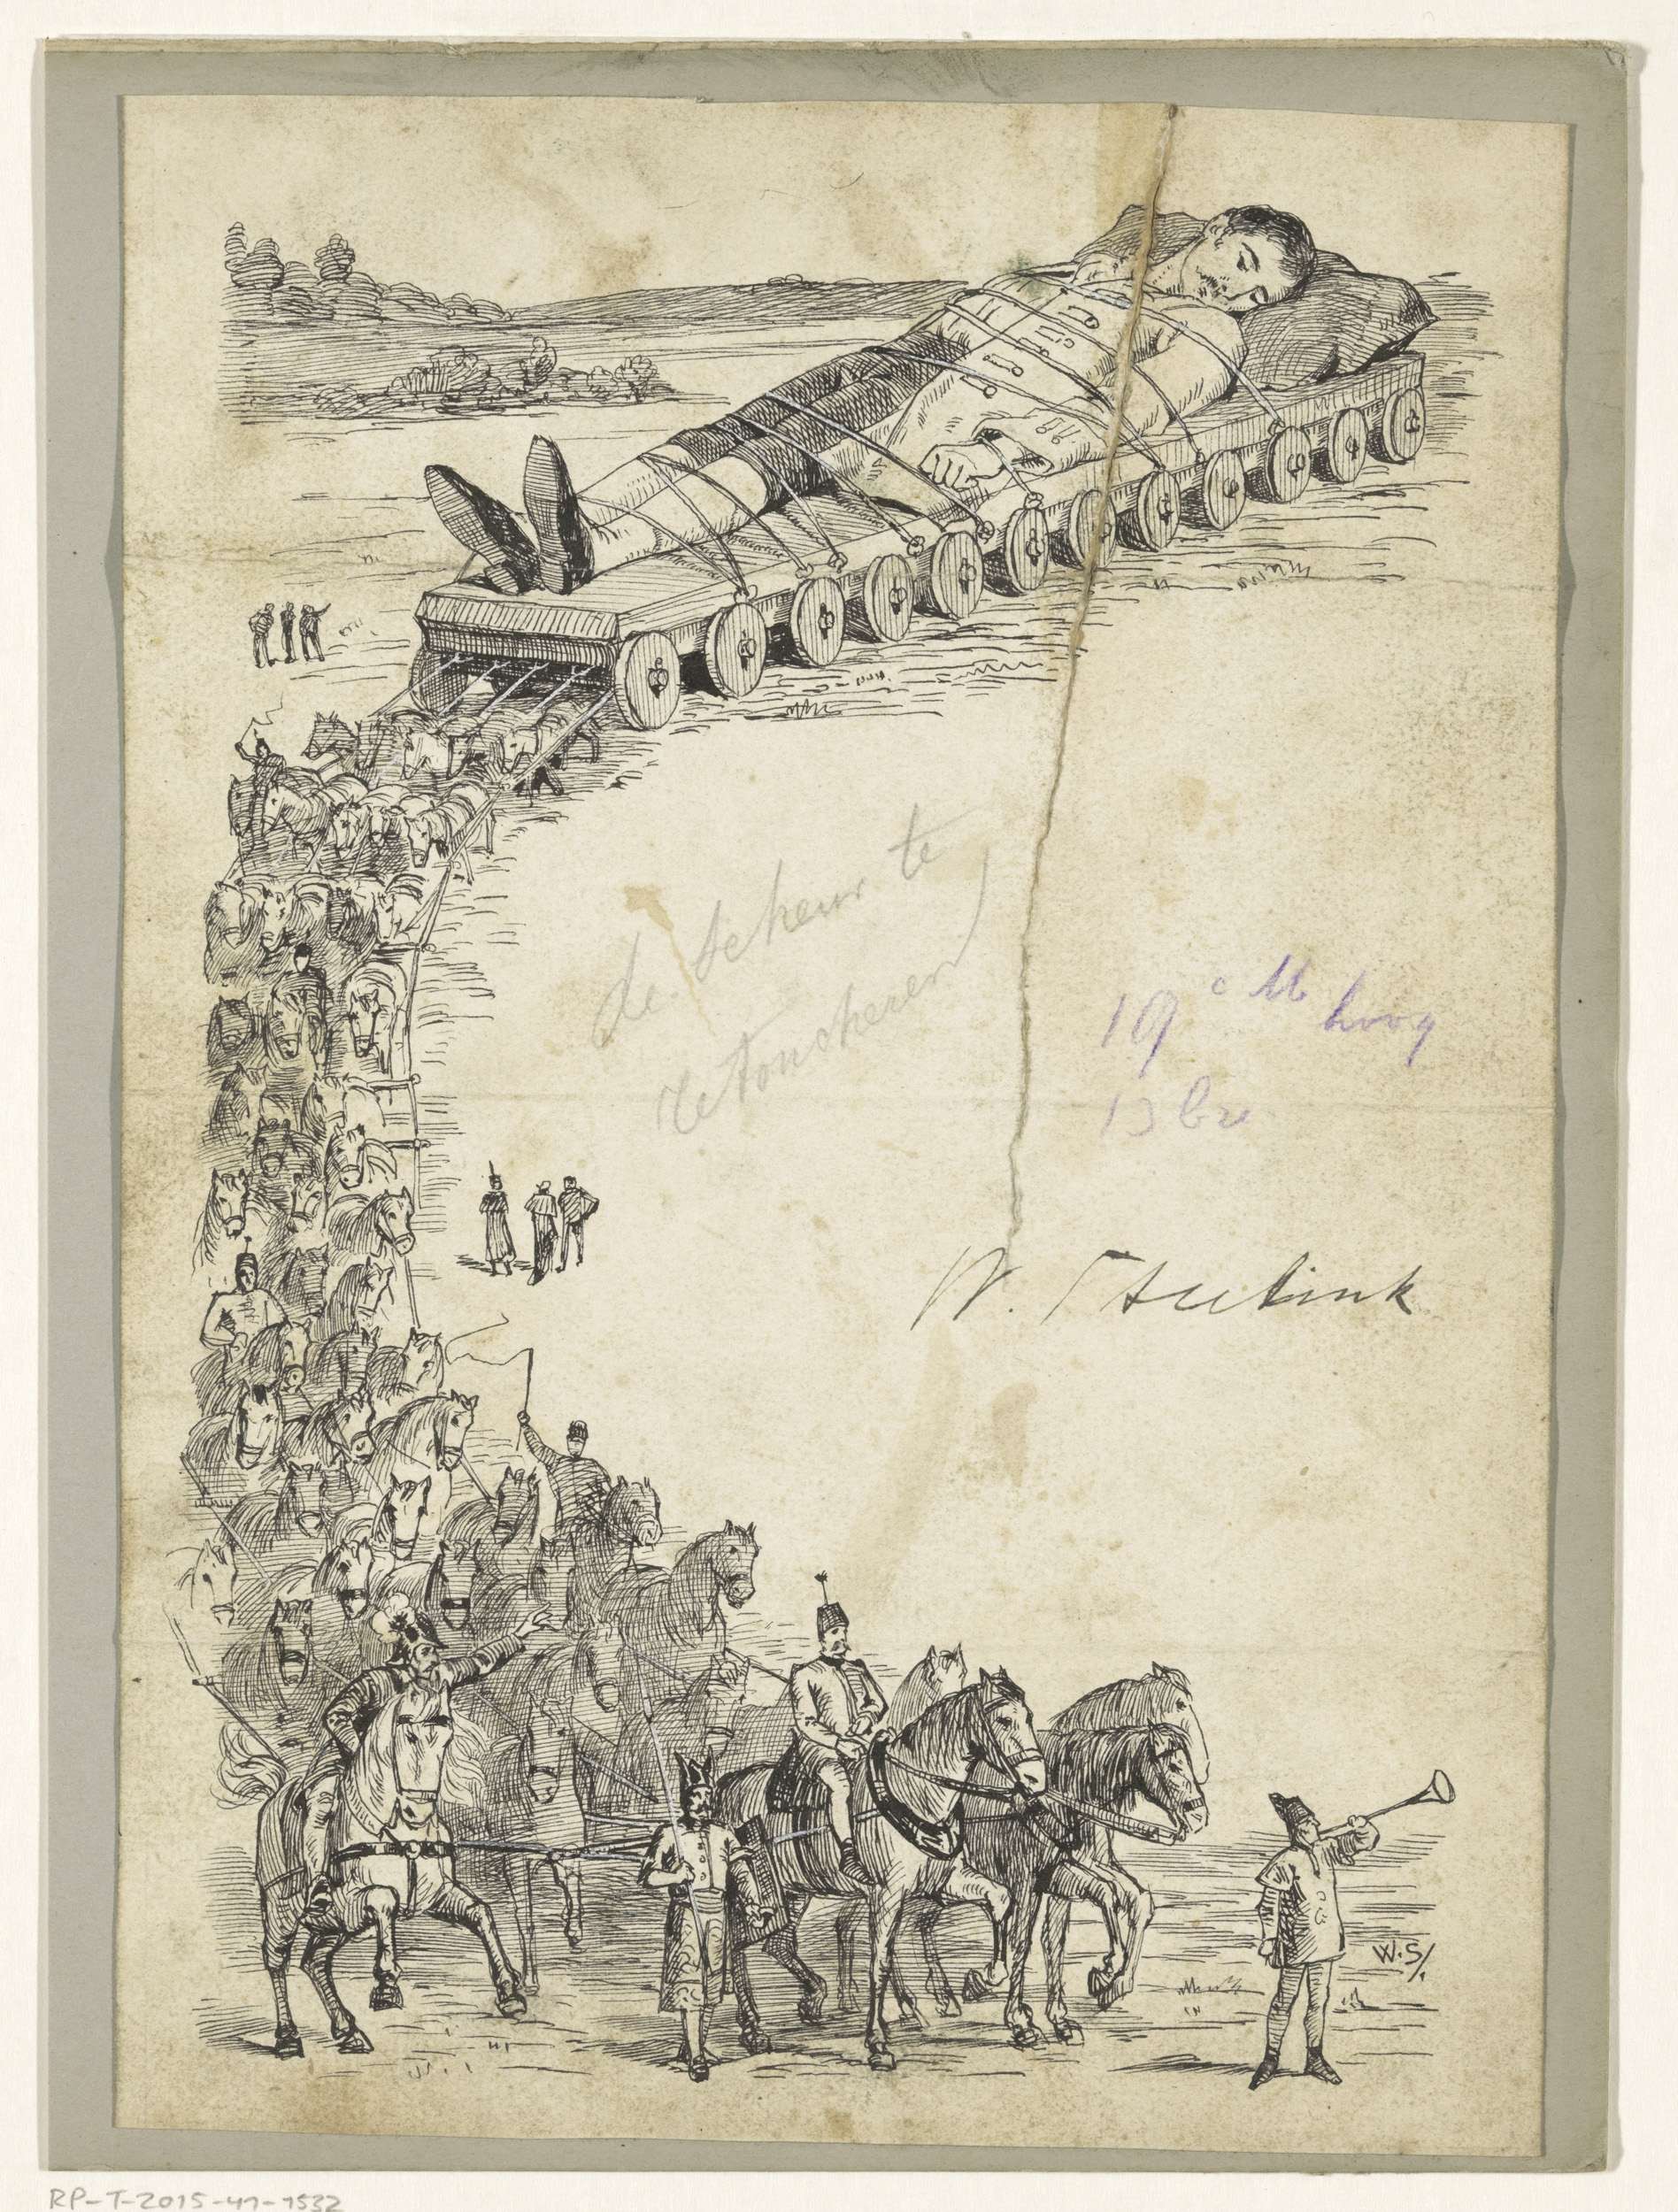 de scheur te
retoucheren)
19 cM hoog
13 br.
W. Steelink
W.S/.
RP-T-2015-41-1532